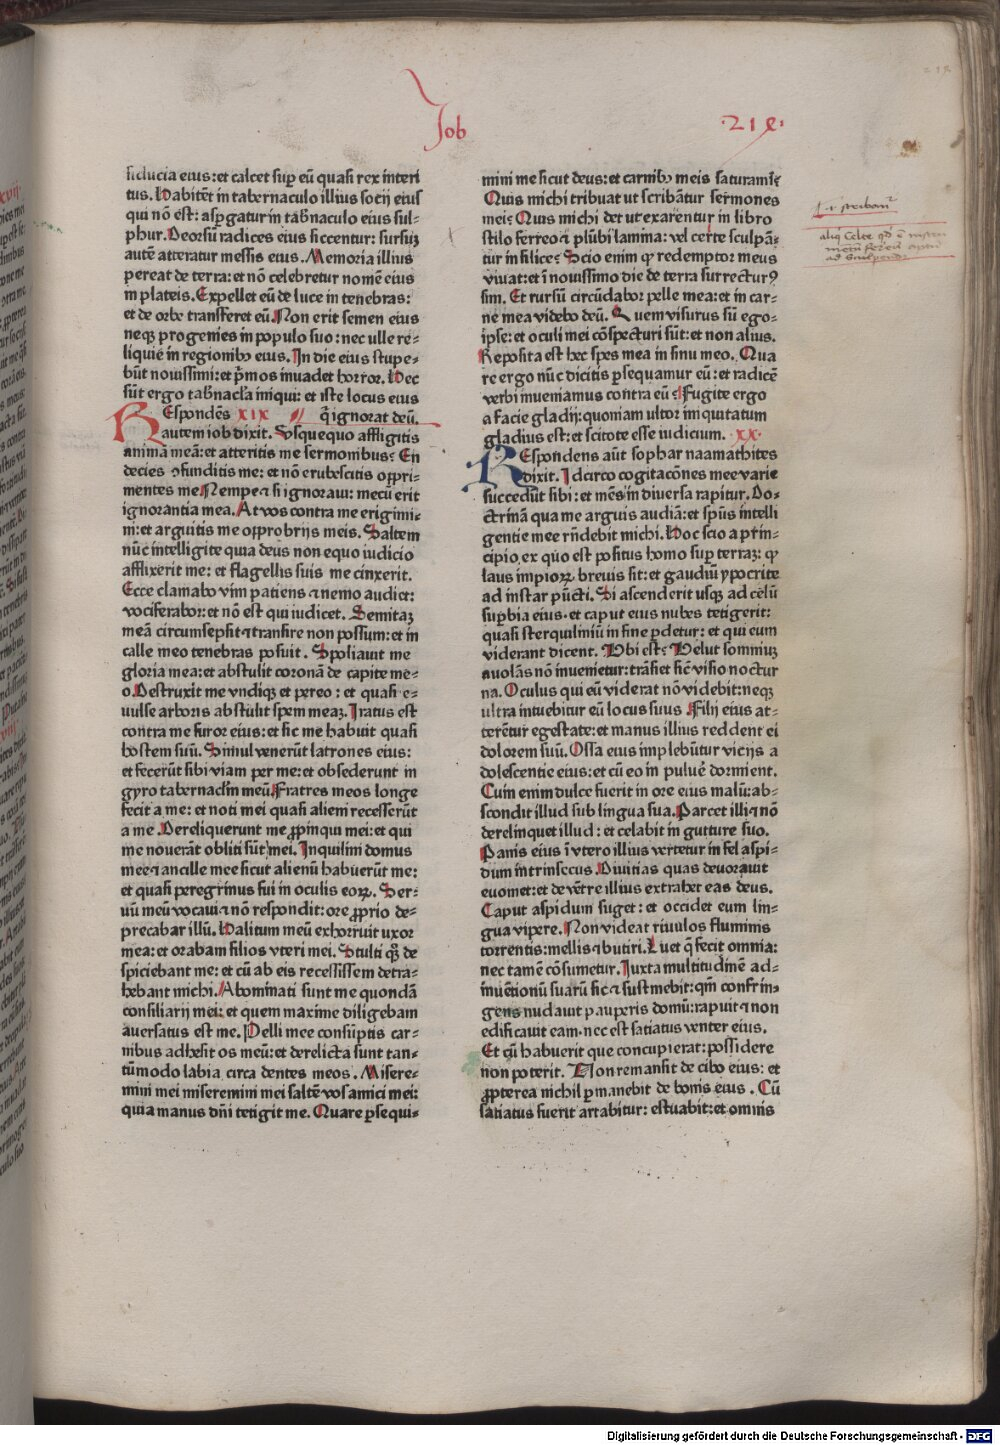 Job
·218·
fiducia eius: et calcet suꝑ eū quasi rex interi
tus. Habitēt in tabernaculo illius socij eius
qui nō est: asꝑgatur in tab̄naculo eius sul⸗
phur. Deorsū radices eius siccentur: sursuꝫ
autē atteratur messis eius. Memoria illius
pereat de terra: et nō celebretur nomē eius
in plateis. Expellet eū de luce in tenebras:
et de orbe transferet eū. Non erit semen eius
neqꝫ progenies in populo suo: nec ulle re⸗
liquie in regionibꝰ eius. In die eius stupe⸗
būt nouissimi: et p̄mos inuadet horror. Hec
sūt ergo tab̄nacl'a iniqui: et iste locus eius
REspondēs XIX q̄ ignorat deū.
autem iob dixit. Vsquequo affligitis
animā meā: et atteritis me sermonibus? En
decies ꝯfunditis me: et nō erubescitis oppri⸗
mentes me. Nempe ⁊ si ignoraui: mecū erit
ignorantia mea. At vos contra me erigimi⸗
ni: et arguitis me opprobrijs meis. Saltem
nūc intelligite quia deus non equo iudicio
afflixerit me: et flagellis suis me cinxerit.
Ecce clamabo vim patiens ⁊ nemo audiet:
vociferabor: et nō est qui iudicet. Semitaꝫ
meā circumsepsit ⁊ transire non possum: et in
calle meo tenebras posuit. Spoliauit me
gloria mea: et abstulit coronā de capite me⸗
o. Destruxit me vndiqꝫ et pereo: et quasi e⸗
uulse arboris abstulit spem meaꝫ. Iratus est
contra me furor eius: et sic me habuit quasi
hostem suū. Simul venerūt latrones eius:
et fecerūt sibi viam per me: et obsederunt in
gyro tabernacl'm meū. Fratres meos longe
fecit a me: et noti mei quasi alieni recesserūt
a me. Dereliquerunt me ꝓpinqui mei: et qui
me nouerāt obliti sūt mei. Inquilini domus
mee ⁊ ancille mee sicut alienū habuerūt me:
et quasi peregrinus fui in oculis eoꝝ. Ser⸗
uū meū vocaui ⁊ nō respondit: ore ꝓprio de⸗
precabar illū. Halitum meū exhorruit uxor
mea: et orabam filios vteri mei. Stulti qꝫ de
spiciebant me: et cū ab eis recessissem detra⸗
hebant michi. Abominati sunt me quondā
consiliarij mei: et quem maxime diligebam
auersatus est me. Pelli mee consūptis car⸗
nibus adhesit os meū: et derelicta sunt tan⸗
tūmodo labia circa dentes meos. Misere⸗
mini mei miseremini mei saltē vos amici mei:
quia manus dn̄i tetigit me. Quare ꝑsequi⸗
mini me sicut deus: et carnibꝰ meis saturami?
Quis michi tribuat ut scribātur sermones
mei? Quis michi det ut exarentur in libro
stilo ferreo ⁊ plūbi lamina: vel certe sculpā⸗
tur in silice? Scio enim ꝙ redemptor meus
viuat: et ī nouissimo die de terra surrecturꝰ
sim. Et rursū circūdabor pelle mea: et in car⸗
ne mea videbo deū. Quem visurus sū ego⸗
ipse: et oculi mei cōspecturi sūt: et non alius.
Reposita est hec spes mea in sinu meo. Qua
re ergo nūc dicitis ꝑsequamur eū: et radicē
verbi inueniamus contra eū? Fugite ergo
a facie gladij: quoniam ultor iniquitatum
gladius est: et scitote esse iudicium. XX·
REspondens aūt sophar naamathites
dixit. Idcirco cogitacōnes mee varie
succedūt sibi: et mēs in diuersa rapitur. Do⸗
ctrinā qua me arguis audiā: et spūs intelli
gentie mee rn̄debit michi. Hoc scio a prin⸗
cipio, ex quo est positus homo suꝑ terraꝫ: ꝙ
laus impioꝝ breuis sit: et gaudiū ypocrite
ad instar pūcti. Si ascenderit usqꝫ ad celū
suꝑbia eius· et caput eius nubes tetigerit:
quasi sterquiliniū in fine ꝑdetur: et qui eum
viderant dicent. Vbi est? Velut somniuꝫ
auolās nō inuenietur: trāsiet sic̄ visio noctur
na. Oculus qui eū viderat nō videbit: neqꝫ
ultra intuebitur eū locus suus. Filij eius at⸗
terētur egestate: et manus illius reddent ei
dolorem suū. Ossa eius implebūtur vicijs a
dolescentie eius: et cū eo in puluē dormient.
Cum enim dulce fuerit in ore eius malū: ab⸗
scondit illud sub lingua sua. Parcet illi ⁊ nō
derelinquet illud: et celabit in gutture suo.
Panis eius ī vtero illius vertetur in fel aspi⸗
dum intrinsecus. Diuitias quas deuorauit
euomet: et de vētre illius extrahet eas deus.
Caput aspidum suget: et occidet eum lin⸗
gua vipere. Non videat riuulos fluminis
torrentis: mellis ⁊ butiri. Luet q̄ fecit omnia:
nec tamē cōsumetur. Iuxta multitudinē ad⸗
inuentionū suarū sic ⁊ sustinebit: qm̄ confrin⸗
gens nudauit pauperis domū: rapuit ⁊ non
edificauit eam. nec est satiatus venter eius.
Et cū habuerit que concupierat: possidere
non poterit. Non remansit de cibo eius: et
ꝓpterea nichil ꝑmanebit de bonis eius. Cū
satiatus fuerit artabitur: estuabit: et omnis
Digitalisierung gefördert durch die Deutsche Forschungsgemeinschaft - DFG